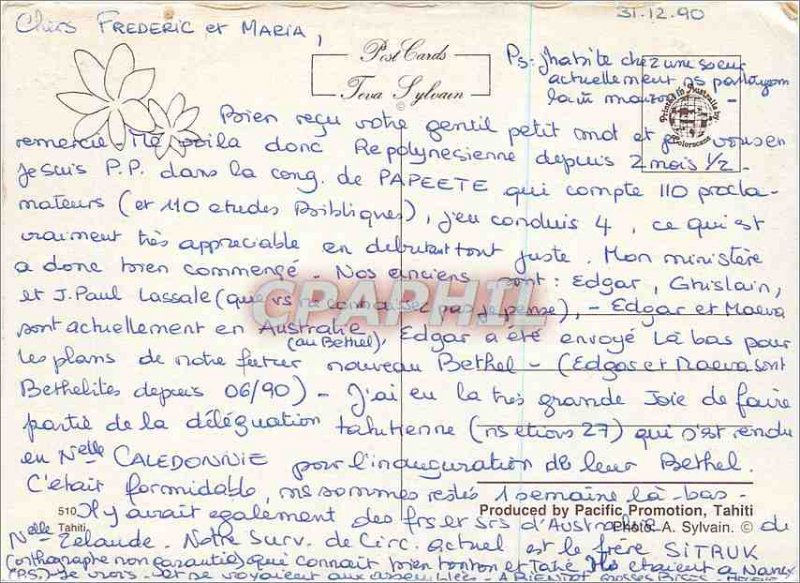 31.12.90
Chers FREDERIC et MARIA,
Post Cards
Teva Sylvain
©
PS: j'habite chez une soeur
actuellement ns partageons
la m̂ maison -
Printed in Australia by
Colorscans
Bien reçu votre gentil petit mot et je vous en
remercie. Me voila donc Repolynésienne depuis 2 mois 1/2 -
Je suis P.P. dans la cong. de PAPEETE qui compte 110 procla-
mateurs (et 110 etudes Bibliques), j'en conduis 4, ce qui est
vraiment très appreciable en debutant tout juste. Mon ministère
a donc bien commencé. Nos anciens sont: Edgar, Ghislain,
et J. Paul Lassale (que vs ne connaissez pas je pense), - Edgar et Maeva
sont actuellement en Australie (au Bethel), Edgar a été envoyé là bas pour
les plans de notre futur nouveau Bethel - (Edgar et Maeva sont
Bethelites depuis 06/90) - J'ai eu la très grande Joie de faire
partie de la déléguation tahitienne (ns etions 27) qui s'est rendu
en Nelle CALEDONNIE pour l'inauguration de leur Bethel.
C'etait formidable, ns sommes restés 1 semaine là-bas -
Il y avait egalement des frs et srs d'Australie de
510
Tahiti
Produced by Pacific Promotion, Tahiti
Photo: A. Sylvain. ©
Nelle Zelande. Notre Surv. de Circ. actuel est le frère SITRUK
(orthographe non garantie) qui connait bien tonton et Tané Ils etaient à
(PS). Je crois et se voyaient aux assemblées - A BIENTOT GROSSES BISES
CPAPHIL